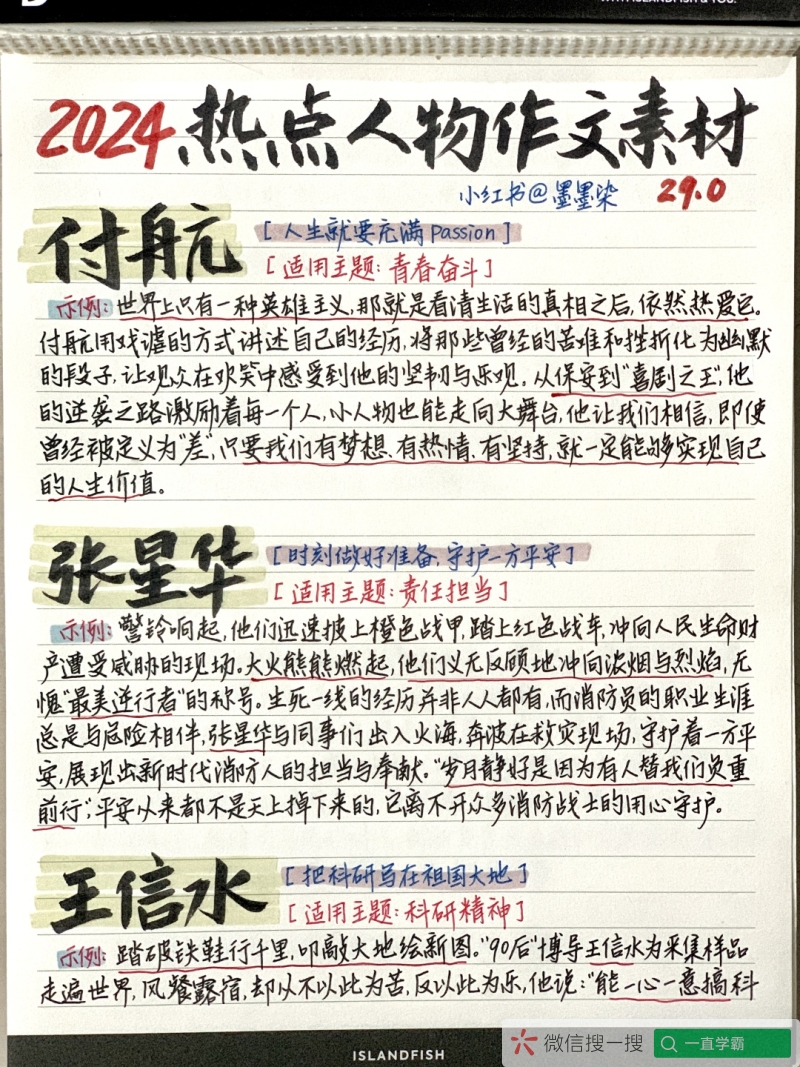 2024热点人物作文素材
小红书@墨墨染 29.0
付航 [人生就要充满passion]
[适用主题:青春奋斗]
示例:世界上只有一种英雄主义,那就是看清生活的真相之后,依然热爱它。
付航用戏谑的方式讲述自己的经历,将那些曾经的苦难和挫折化为幽默
的段子,让观众在欢笑中感受到他的坚韧与乐观。从保安到“喜剧之王”,他
的逆袭之路激励着每一个人,小人物也能走向大舞台,他让我们相信,即使
曾经被定义为“差”,只要我们有梦想、有热情、有坚持,就一定能够实现自己
的人生价值。
张星华 [时刻做好准备,守护一方平安]
[适用主题:责任担当]
示例:警铃响起,他们迅速披上橙色战甲,踏上红色战车,冲向人民生命财
产遭受威胁的现场。大火熊熊燃起,他们义无反顾地冲向浓烟与烈焰,无
愧“最美逆行者”的称号。生死一线的经历并非人人都有,而消防员的职业生涯
总是与危险相伴,张星华与同事们出入火海,奔波在救灾现场,守护着一方平
安,展现出新时代消防人的担当与奉献。“岁月静好是因为有人替我们负重
前行”,平安从来都不是天上掉下来的,它离不开众多消防战士的用心守护。
王信水 [把科研写在祖国大地]
[适用主题:科研精神]
示例:踏破铁鞋行千里,叩敲大地绘新图。“90后”博导王信水为采集样品
走遍世界,风餐露宿,却从不以此为苦,反以此为乐,他说:“能一心一意搞科
ISLANDFISH
微信搜一搜 一直学霸